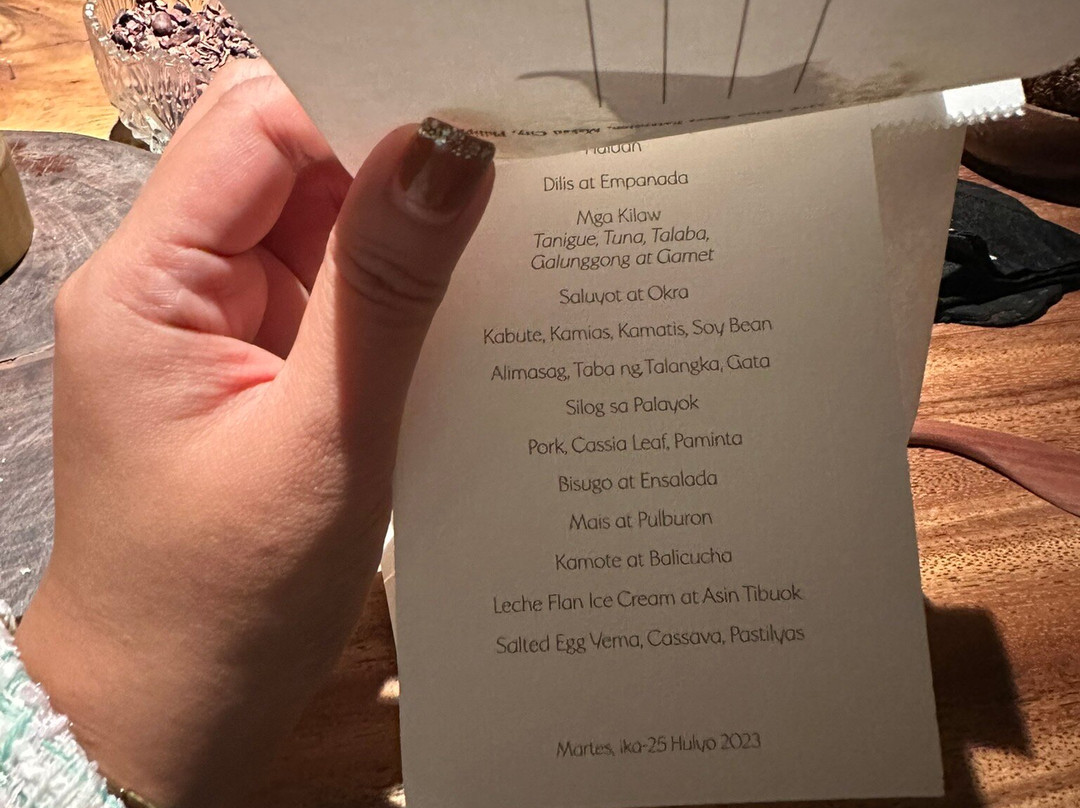 Makati City, Philipp
Dilis at Empanada
Mga Kilaw
Tanigue, Tuna, Talaba,
Galunggong at Gamet
Saluyot at Okra
Kabute, Kamias, Kamatis, Soy Bean
Alimasag, Taba ng Talangka, Gata
Silog sa Palayok
Pork, Cassia Leaf, Paminta
Bisugo at Ensalada
Mais at Pulburon
Kamote at Balicucha
Leche Flan Ice Cream at Asin Tibuok
Salted Egg Yema, Cassava, Pastilyas
Martes, ika-25 Hulyo 2023